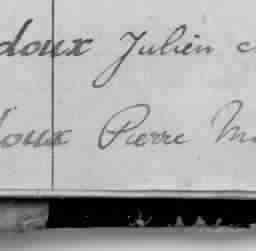 doux Julien
doux Pierre